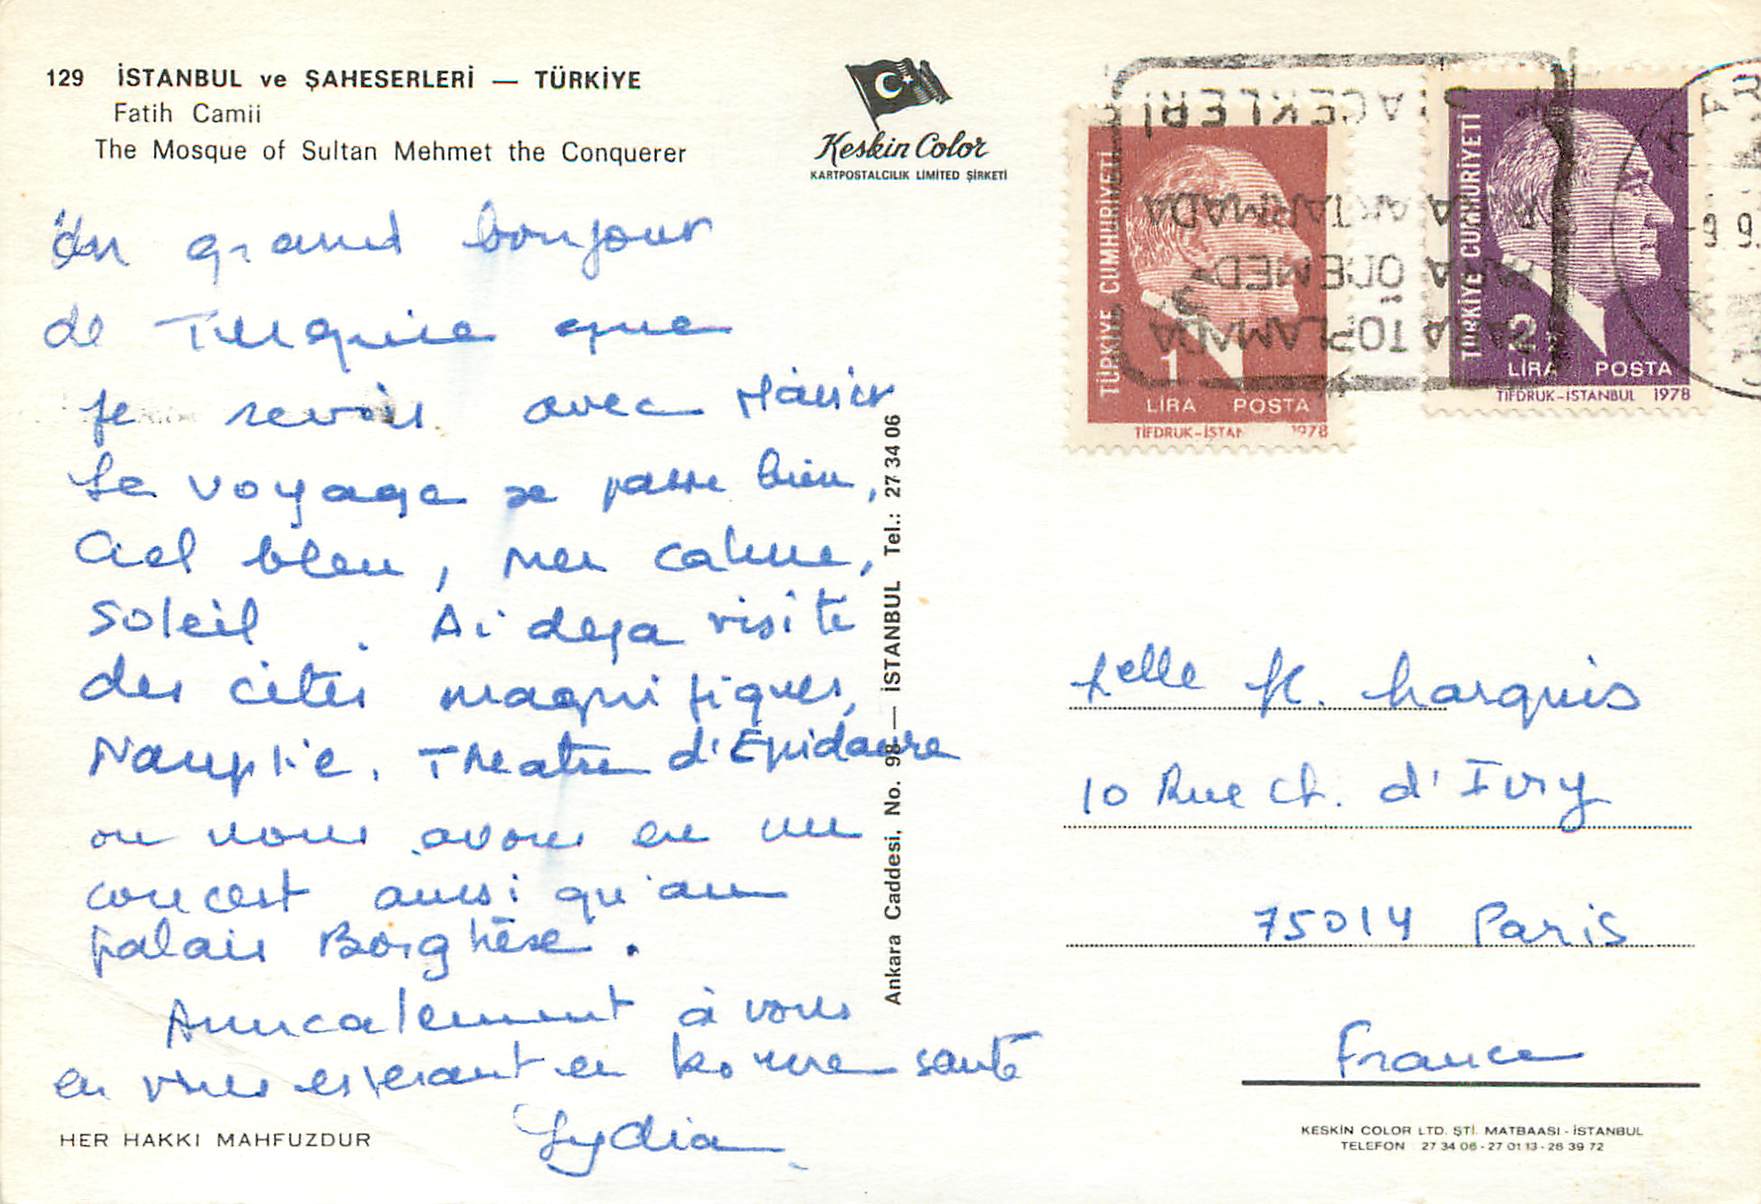 129 İSTANBUL ve ŞAHESERLERİ — TÜRKİYE
Fatih Camii
The Mosque of Sultan Mehmet the Conquerer
Keskin Color
KARTPOSTALCILIK LIMITED ŞİRKETİ
Un grand bonjour
de Turquie que
je revois avec
Le voyage se passe bien,
Ciel bleu, mer calme,
soleil. Ai deja visité
des cités magnifiques,
Nauplie, Theatre d'Epidaure
ou nous avons eu un
concert aussi qu'au
palais Borghèse.
Amicalement à vous
en vous esperant en bonne santé
Lydia
HER HAKKI MAHFUZDUR
Ankara Caddesi, No. 98 — İSTANBUL Tel.: 27 34 06
TÜRKİYE CUMHURİYETİ
1
LİRA POSTA
TİFDRUK-İSTAN 1978
TÜRKİYE CUMHURİYETİ
2
LİRA POSTA
TİFDRUK-İSTANBUL 1978
PARA AKTARMADA
PARA ÖDEMEDE
PARA TOPLAMADA
Melle M. Marquis
10 Rue Ch. d'Ivry
75014 Paris
France
KESKİN COLOR LTD. ŞTİ. MATBAASI - İSTANBUL
TELEFON 27 34 06 - 27 01 13 - 26 39 72